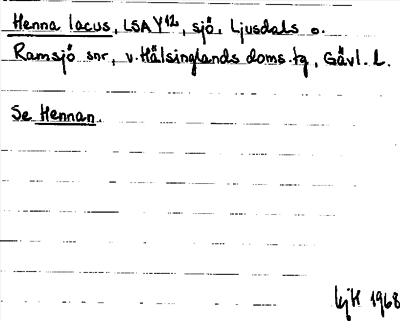 Henna lacus, LSA Y12, sjö, Ljusdals o.
Ramsjö snr, v. Hälsinglands doms. tg, Gävl. L.
Se Hennan.
1968